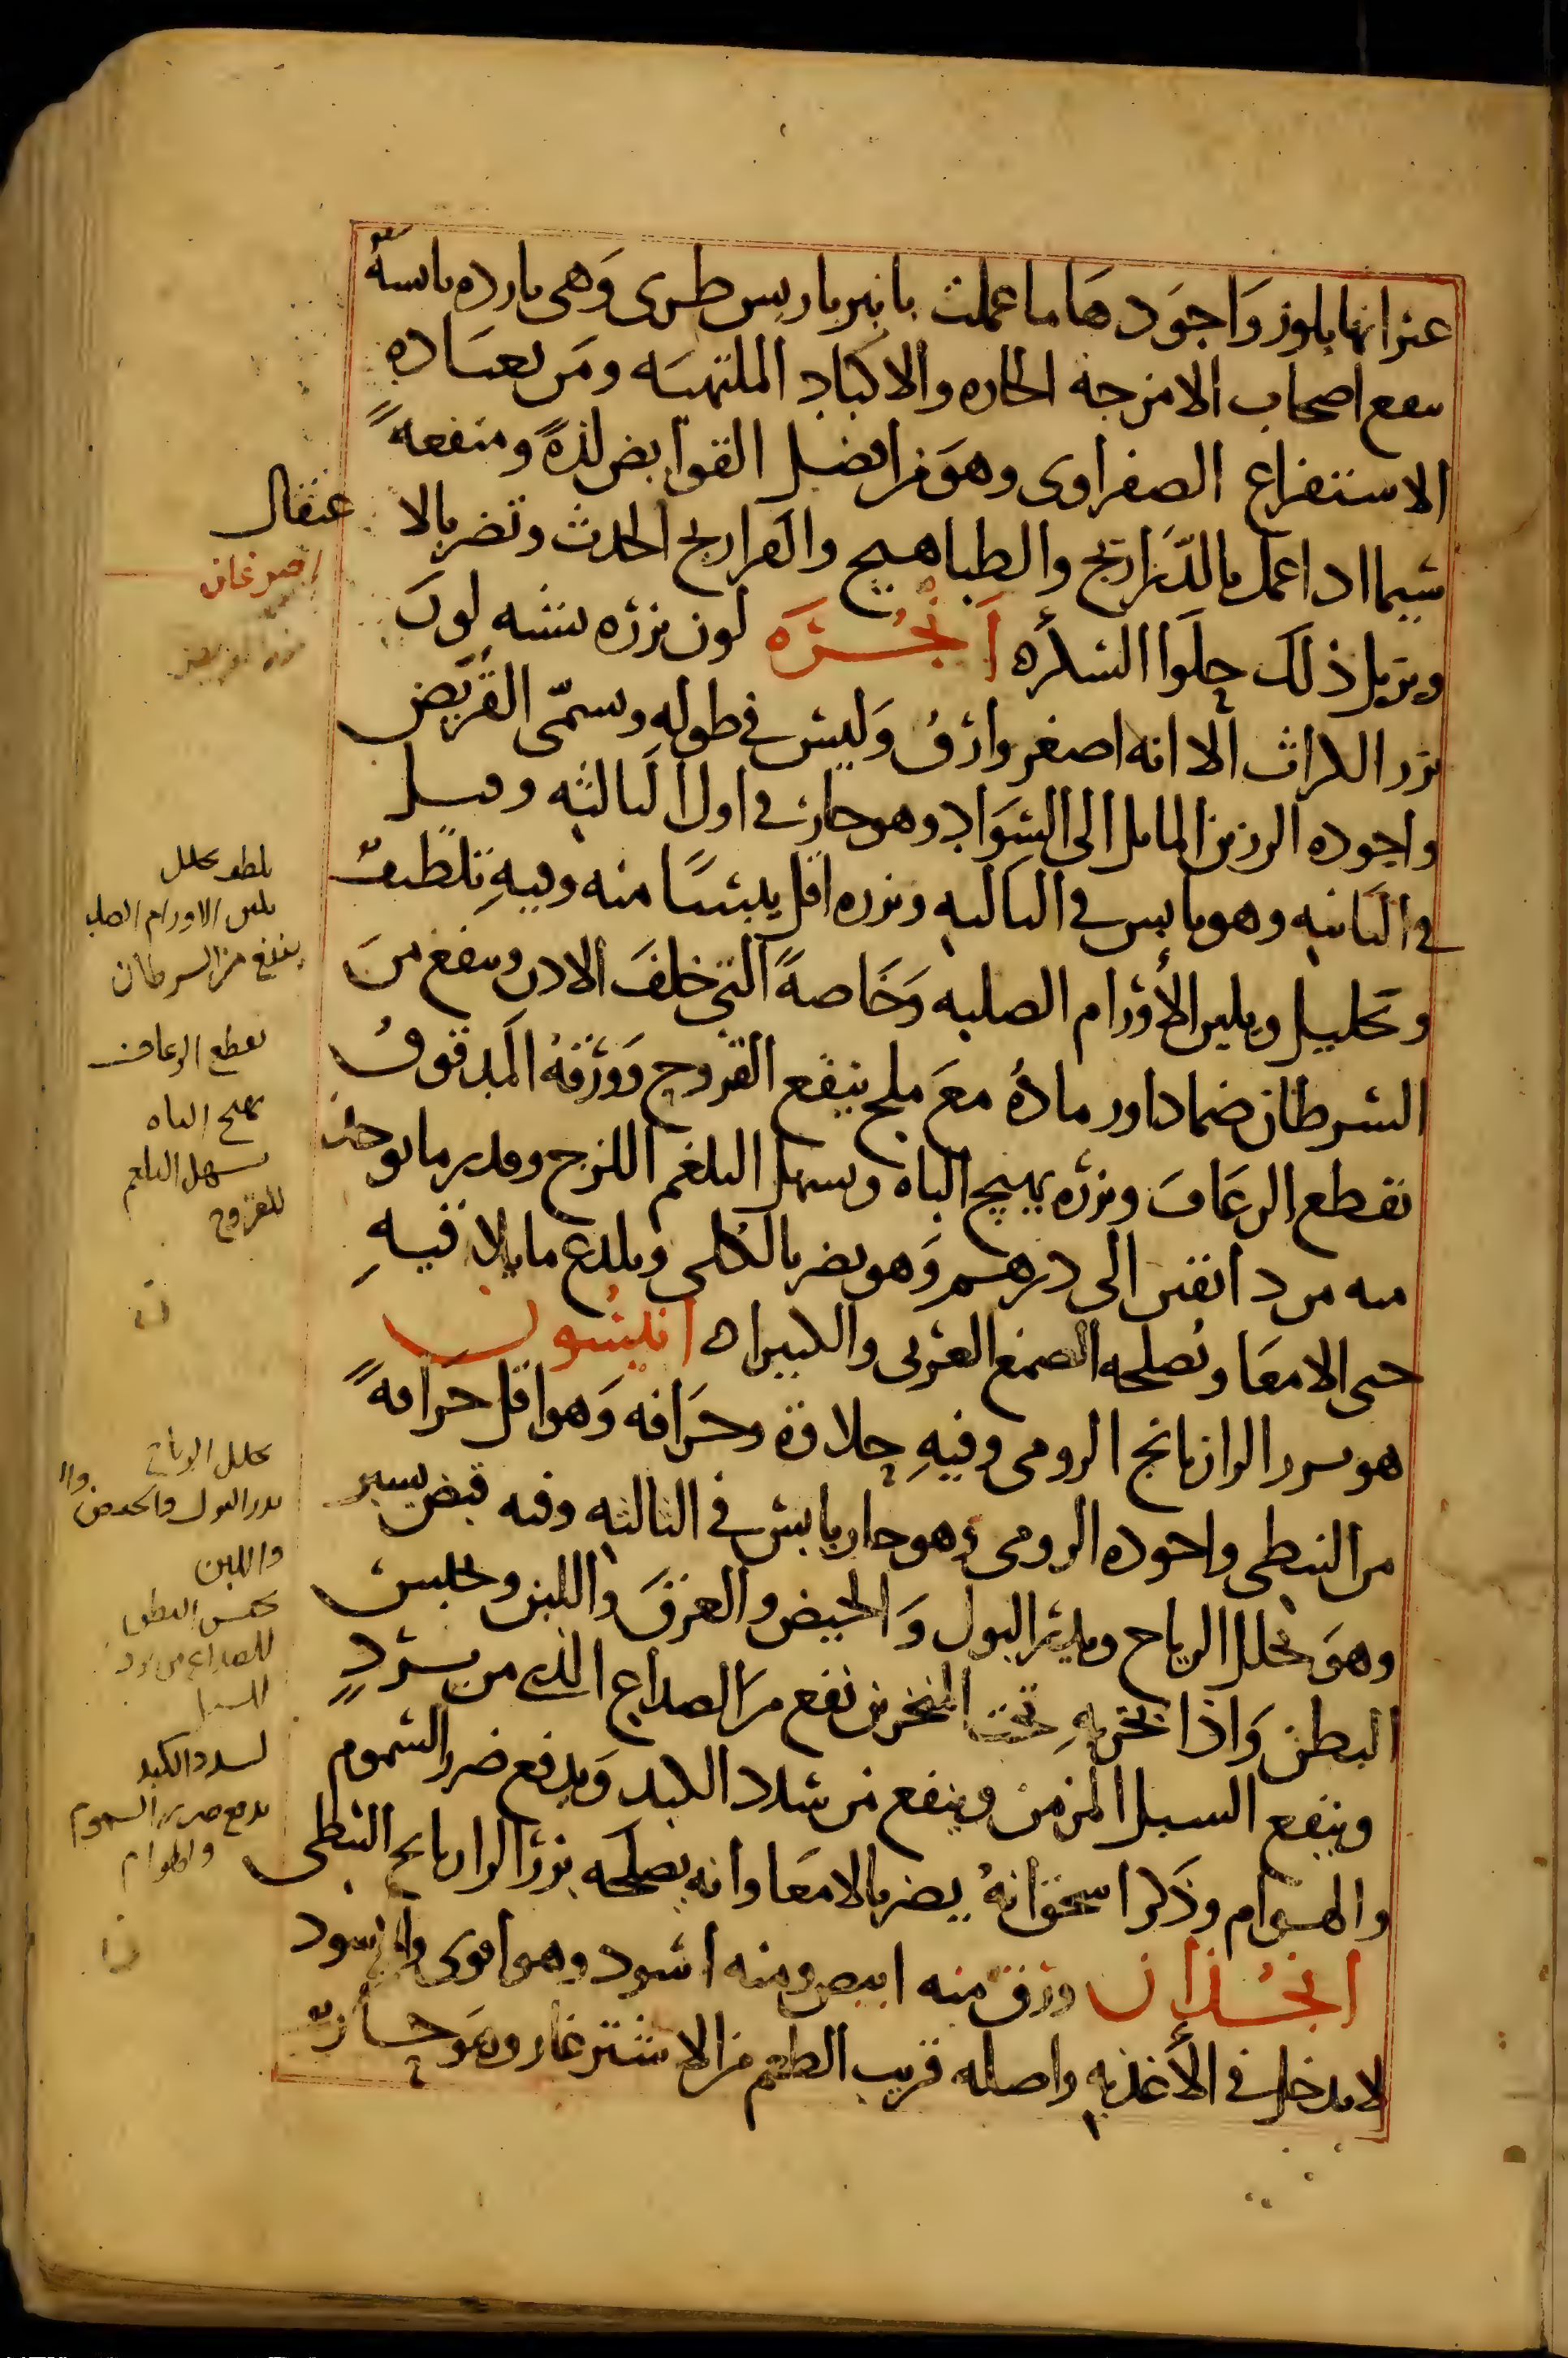 عنرانها بلوز واجودها ما عملت بانبرباريس طرى وهى بارده يابسة
ينفع اصحاب الامزجة الحاره والاكباد الملتهبه ومن يعتاده
الاستفراغ الصفراوى وهو من افضل القوابض لذة ومنفعة
سيما اذا عمل بالدراريج والطباهيج والفراريج الحدث وتضر بالا
عتقال
ويزيل ذلك حلوا السكره انجُره لون بزره يشبه لون
بزر الكراث الا انه اصغر وارق وليس فى طوله ويسمى القريض
واجوده الرزين المايل الى السواد وهو حار فى اول الثالثه وقيل
فى الثانيه وهو يابس فى الثالثه وبزره اقل يبسا منه وفيه تلطيف
وتحليل ويلين الأورام الصلبه وخاصة التى خلف الاذن وينفع من
السرطان ضمادا ورماده مع ملح ينفع القروح وورقه المدقوق
يقطع الرعاف وبزره يهيج الباه ويسهل البلغم اللزج وقدر ما يوخذ
منه من دانقين الى درهم وهو يضر بالكلى ويلدع ما يلاقيه
حتى الامعا ويصلحه الصمغ العربى والكثيراه انيسون
هو بزر الرازيانج الرومى وفيه حلاوة وحرافه وهو اقل حرافة
من النبطى واجوده الرومى وهو حار يابس فى الثالثه وفيه قبض يسير
وهو يحلل الرياح ويدر البول والحيض والعرق واللبن ويحبس
البطن واذا بخر به تحت المنخرين نفع من الصداع الذى من برد
وينفع السبل المزمن وينفع من سدد الكبد ويدفع ضرر السموم
والهوام وذكر اسحق انه يضر بالامعا وانه يصلحه بزر الرازيانج النبطى
انجُدان ورق منه ابيض ومنه اسود وهو اقوى والاسود
لا يدخل فى الأغذيه واصله قريب الطعم من الاشترغار وهو حار
يلطف يحلل
يلين الاورام الصلب
ينفع من السرطان
يقطع الرعاف
يهيج الباه
يسهل البلغم
للقروح
يحلل الرياح
يدر البول والحيض
واللبن
يحبس البطن
للصداع من برد
السبل
لسدد الكبد
يدفع ضرر السموم
والهوام